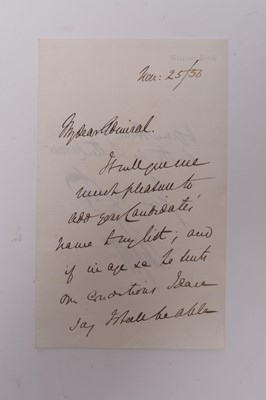 Nov: 25/56
My dear Admiral.
It will give me
much pleasure to
add your Candidates'
name to my list; and
if in age &c he suits
our conditions I dare
say I shall be able